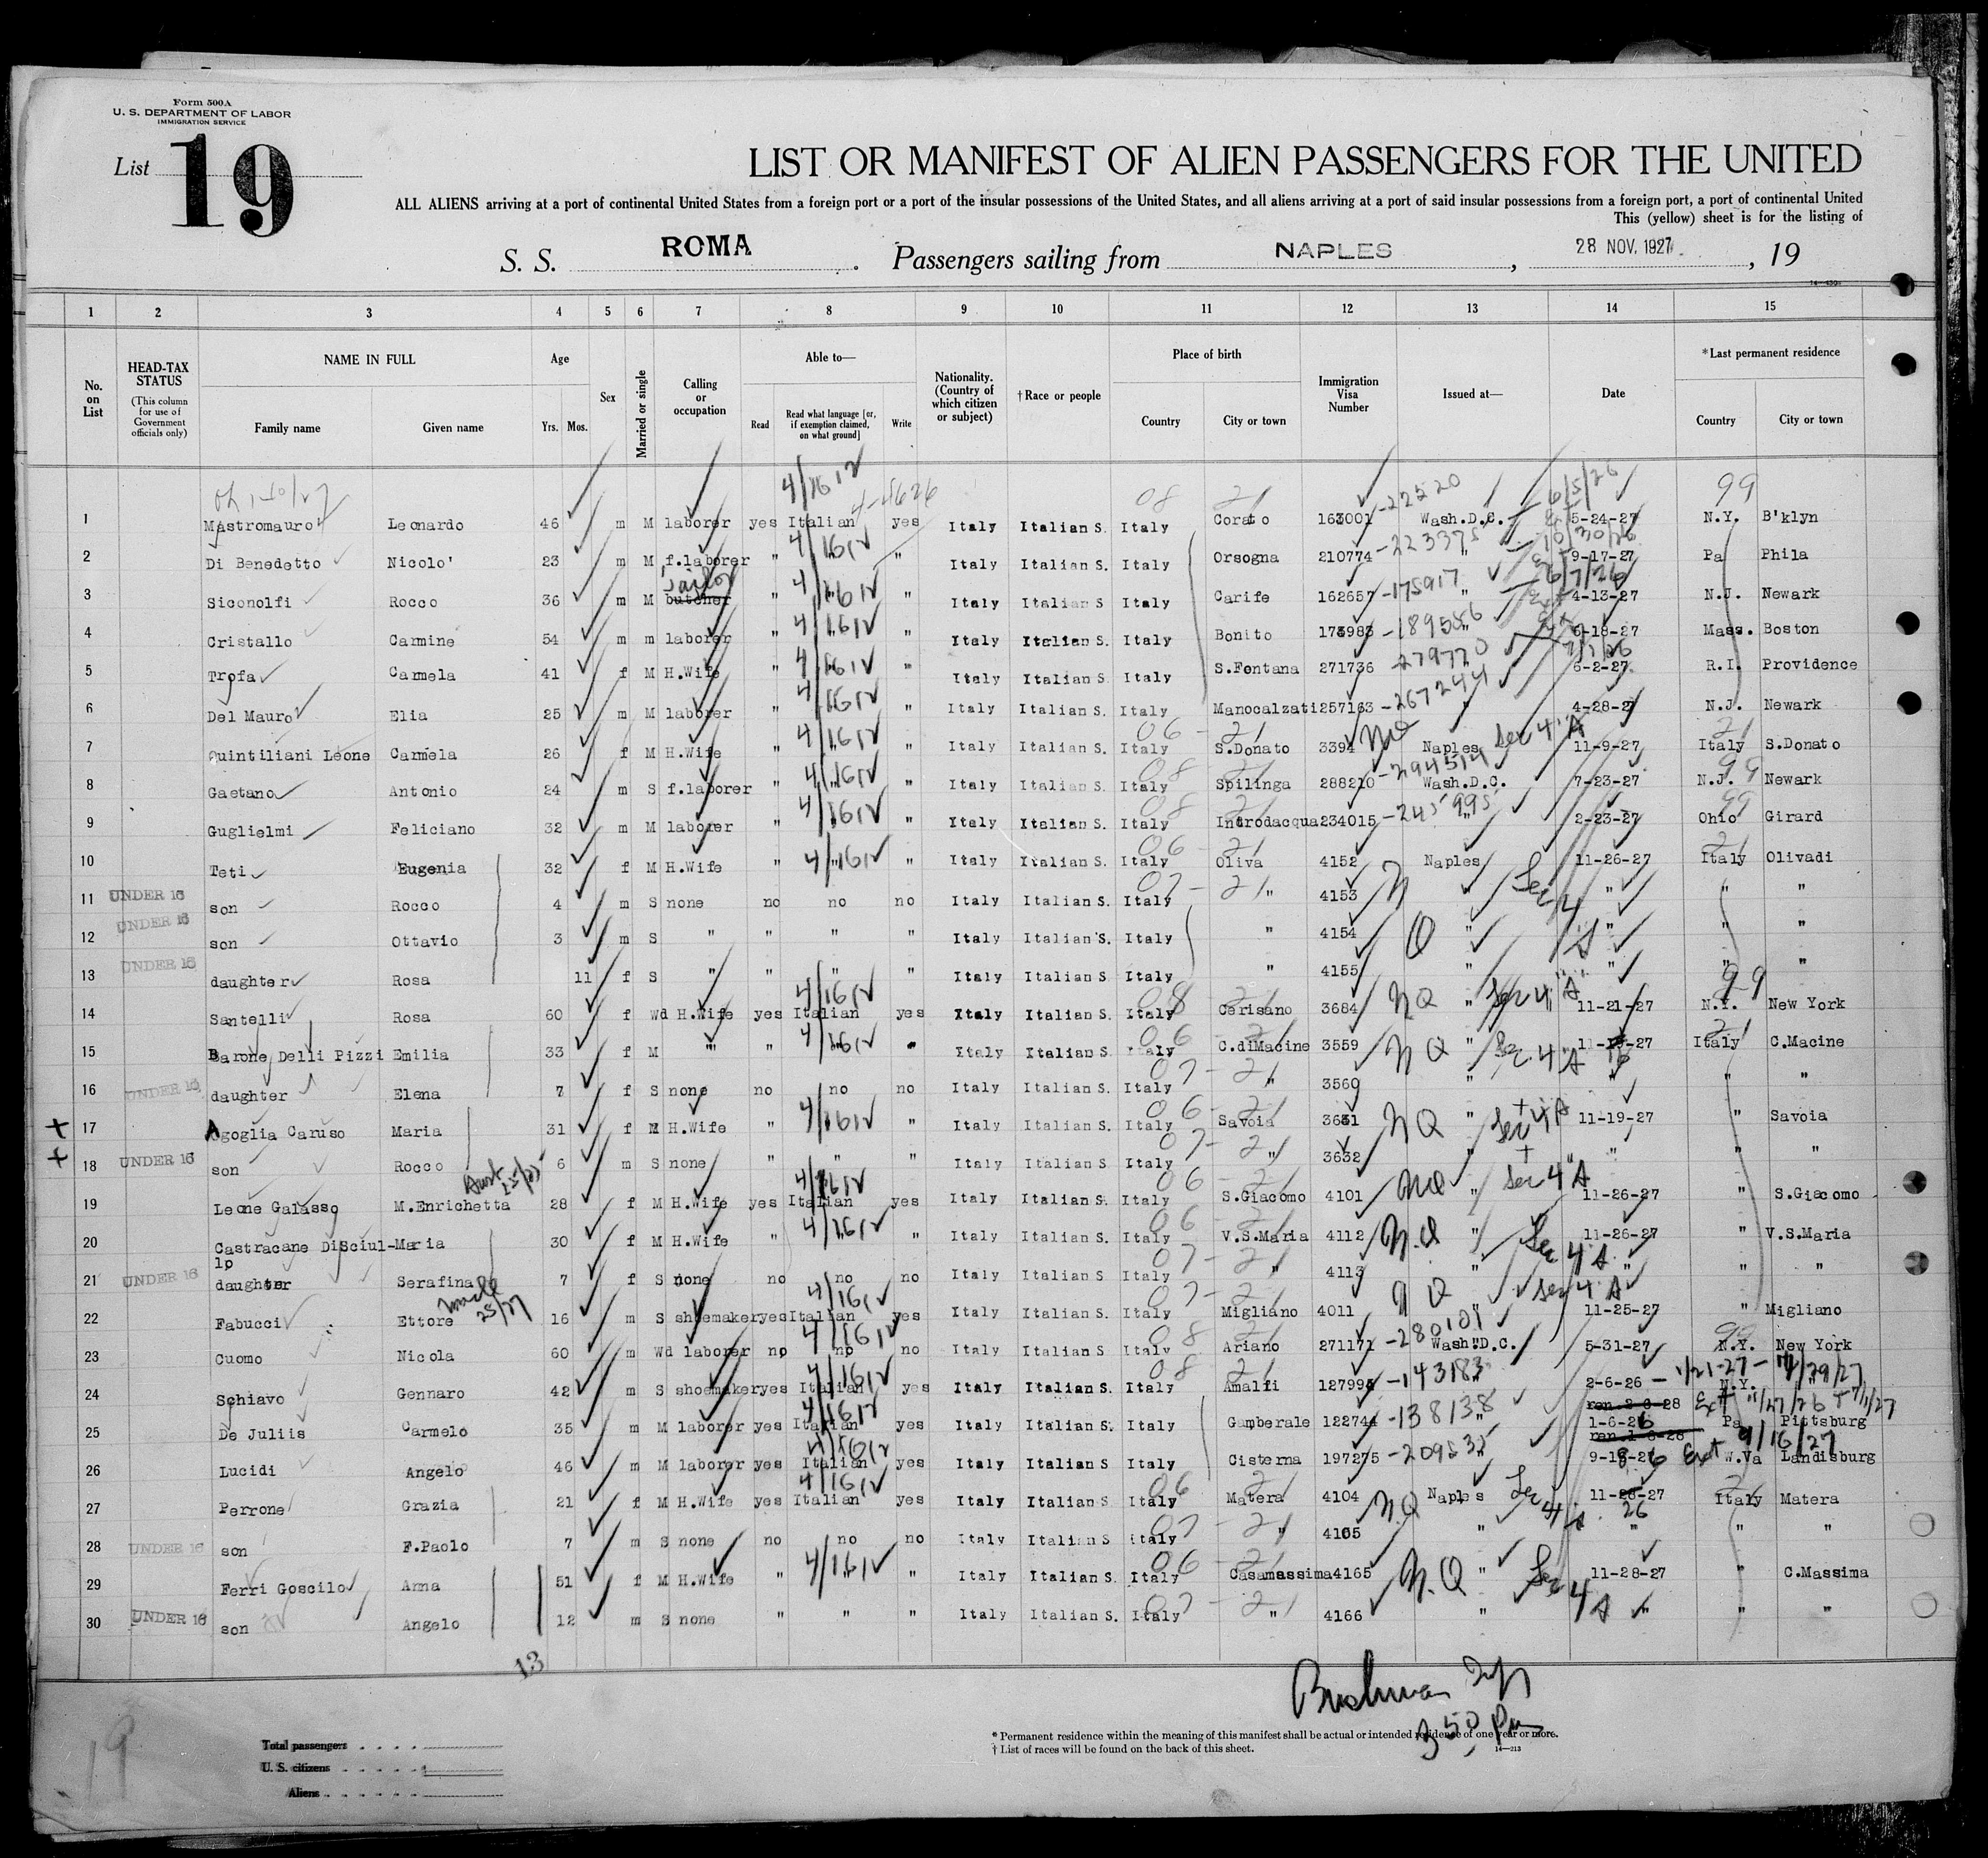 Form 500A
U. S. DEPARTMENT OF LABOR
IMMIGRATION SERVICE
List 19
LIST OR MANIFEST OF ALIEN PASSENGERS FOR THE UNITED
ALL ALIENS arriving at a port of continental United States from a foreign port or a port of the insular possessions of the United States, and all aliens arriving at a port of said insular possessions from a foreign port, a port of continental United
This (yellow) sheet is for the listing of
S. S. ROMA. Passengers sailing from NAPLES, 28 NOV. 1927, 19
1 2 3 4 5 6 7 8 9 10 11 12 13 14 15
No. on List
HEAD-TAX STATUS (This column for use of Government officials only)
NAME IN FULL Family name Given name
Age Yrs. Mos.
Sex
Married or single
Calling or occupation
Able to— Read Read what language [or, if exemption claimed, on what ground] Write
Nationality. (Country of which citizen or subject)
†Race or people
Place of birth Country City or town
Immigration Visa Number
Issued at—
Date
*Last permanent residence Country City or town
1 Mastromauro Leonardo 46 m M laborer yes Italian yes Italy Italian S. Italy Corato 163001 -22520 Wash.D.C. 5-24-27 N.Y. B'klyn
2 Di Benedetto Nicolo' 23 m M f.laborer " " " Italy Italian S. Italy Orsogna 210774 -223375 " 9-17-27 Pa Phila
3 Siconolfi Rocco 36 m M butcher tailor " " " Italy Italian S Italy Carife 162657 -175917 " 4-13-27 N.J. Newark
4 Cristallo Carmine 54 m m laborer " " " Italy Italian S. Italy Bonito 173983 -189556 " 6-18-27 Mass. Boston
5 Trofa Carmela 41 f M H.Wife " " " Italy Italian S. Italy S.Fontana 271736 -279770 6-2-27 R.I. Providence
6 Del Mauro Elia 25 m M laborer " " " Italy Italian S. Italy Manocalzati 257163 -267244 " 4-28-27 N.J. Newark
7 Quintiliani Leone Carmela 26 f M H.Wife " " " Italy Italian S. Italy S.Donato 3394 NQ Naples Sec 4 A 11-9-27 Italy S.Donato
8 Gaetano Antonio 24 m S f.laborer " " " Italy Italian S. Italy Spilinga 288210 -294514 Wash.D.C. 7-23-27 N.J. Newark
9 Guglielmi Feliciano 32 m M laborer " " " Italy Italian S. Italy Introdacqua 234015 -245995 " 2-23-27 Ohio Girard
10 Teti Eugenia 32 f M H.Wife " " " Italy Italian S. Italy Oliva 4152 Naples 11-26-27 Italy Olivadi
11 UNDER 16 son Rocco 4 m S none no no no Italy Italian S. Italy " 4153 N Sec 4 " " "
12 UNDER 16 son Ottavio 3 m S " " " " Italy Italian S. Italy " 4154 Q " A " " "
13 UNDER 16 daughter Rosa 11 f S " " " " Italy Italian S. Italy " 4155 " " " "
14 Santelli Rosa 60 f Wd H.Wife yes Italian yes Italy Italian S. Italy Cerisano 3684 NQ " Sec 4 A 11-21-27 N.Y. New York
15 Barone Delli Pizzi Emilia 33 f M " " " " Italy Italian S. Italy C.diMacine 3559 NQ " Sec 4 A Italy C.Macine
16 UNDER 16 daughter Elena 7 f S none no no no Italy Italian S. Italy " 3560 " " " "
17 Agoglia Caruso Maria 31 f M H.Wife " " Italy Italian S. Italy Savoia 3631 NQ " Sec 4 A 11-19-27 " Savoia
18 UNDER 16 son Rocco 6 m S none " " " Italy Italian S Italy " 3632 " " " "
19 Leone Galasso M.Enrichetta 28 f M H.Wife yes Italian yes Italy Italian S. Italy S.Giacomo 4101 NQ " Sec 4 A 11-26-27 " S.Giacomo
20 Castracane DiSciul- Maria 30 f M H.Wife " " " Italy Italian S. Italy V.S.Maria 4112 N.Q " Sec 4 A. 11-26-27 " V.S.Maria
lp
21 UNDER 16 daughter Serafina 7 f S none no no no Italy Italian S. Italy " 4113 " " " "
22 Fabucci Ettore 16 m S shoemaker yes Italian yes Italy Italian S. Italy Migliano 4011 NQ " Sec 4 A 11-25-27 " Migliano
23 Cuomo Nicola 60 m Wd laborer no no no Italy Italian S Italy Ariano 271171 -280101 Wash.D.C. 5-31-27 N.Y. New York
24 Schiavo Gennaro 42 m S shoemaker yes Italian yes Italy Italian S. Italy Amalfi 127996 -143183 " 2-6-26 - 1/21-27 N.Y. "
ren.2-6-28
25 De Juliis Carmelo 35 m M laborer yes Italian yes Italy Italian S. Italy Gamberale 122744 -138138 " 1-6-26 Pa Pittsburg
ren.1-6-28
26 Lucidi Angelo 46 m M laborer yes Italian yes Italy Italian S Italy Cisterna 197275 -209535 " Ext 9/16/27 W.Va Landisburg
27 Perrone Grazia 21 f M H.Wife yes Italian yes Italy Italian S Italy Matera 4104 N.Q Naples Sec 4 A. 11-26-27 Italy Matera
28 UNDER 16 son F.Paolo 7 m S none no no no Italy Italian S Italy " 4105 " " " "
29 Ferri Goscilo Anna 51 f M H.Wife " " " Italy Italian S. Italy Casamassima 4165 N.Q " Sec 11-28-27 " C.Massima
30 UNDER 16 son Angelo 12 m S none " " " Italy Italian S. Italy " 4166 " 4 A " " "
13
19
3 50 Pm
Total passengers
U. S. citizens
Aliens
* Permanent residence within the meaning of this manifest shall be actual or intended residence of one year or more.
† List of races will be found on the back of this sheet.
14—213